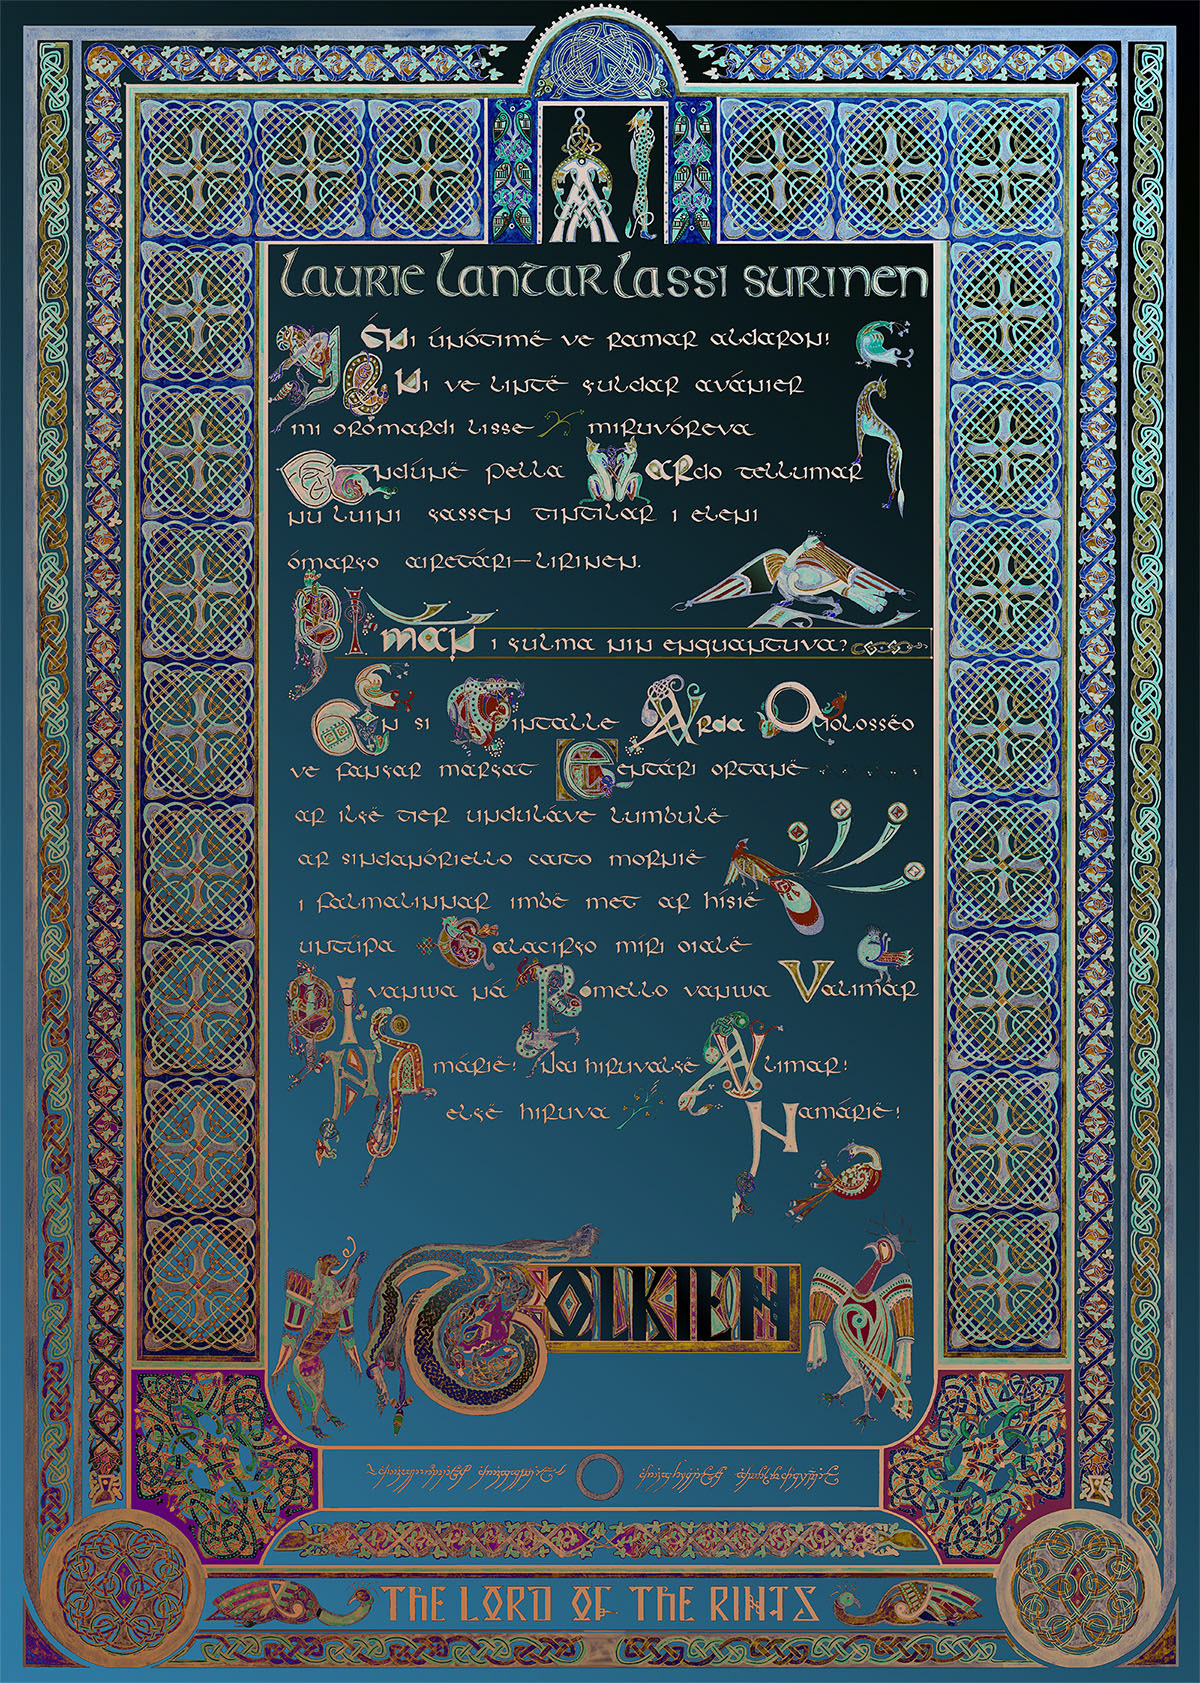 AI
laurie lantar lassi surinen
Yéni únótimë ve ramar aldaron!
Yéni ve lintë yuldar avánier
mi oromardi lisse miruvóreva
Andúnë pella Vardo tellumar
nu luini yassen tintilar i eleni
ómaryo airetári–lirinen.
Si mán i yulma nin enquantuva?
An si Tintalle Varda Oiolossëo
ve fanyar maryat Elentári ortanë
ar ilyë tier unduláve lumbulë
ar sindanóriello caito mornië
i falmalinnar imbë met ar hísië
untúpa Calaciryo míri oialë
Si vanwa ná Rómello vanwa Valimar
Namárië! Nai hiruvalyë Valimar!
elyë hiruva Namárië!
TOLKIEN
THE LORD OF THE RINGS